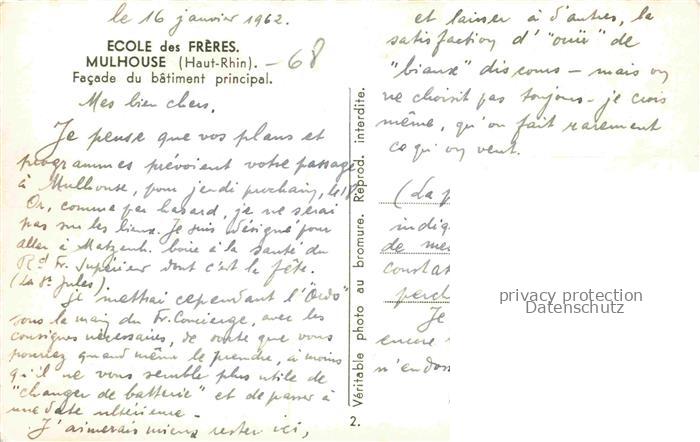 le 16 janvier 1962.
ECOLE des FRÈRES.
MULHOUSE (Haut-Rhin). - 68
Façade du bâtiment principal.
Mes bien chers,
Je pense que vos plans et
programmes prévoient votre passage
à Mulhouse, pour jeudi prochain, le 18
Or, comme par hasard, je ne serai
pas sur les lieux. Je suis désigné pour
aller à Matzenh. boire à la santé du
Rd Fr. Supérieur dont c'est la fête.
(La St Jules).
Je mettrai cependant l'"Ordo"
sous la main du Fr. Concierge, avec les
consignes nécessaires, de sorte que vous
pourrez quand même le prendre, à moins
qu'il ne vous semble plus utile de
"changer de batterie" et de passer à
une date ultérieure -
J'aimerais mieux rester ici,
Véritable photo au bromure. Reprod. interdite.
2.
et laisser à d'autres, la
satisfaction d'"ouïr" de
"biaux" discours - mais on
ne choisit pas toujours - je crois
même, qu'on fait rarement
ce qu'on veut.
(La p
indig
de me
consta
perch
Je
encore
n'endoss
privacy protection
Datenschutz